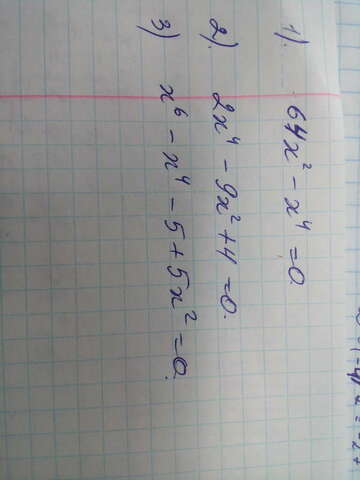 1). 64x² - x⁴ = 0
2). 2x⁴ - 9x² + 4 = 0.
3) x⁶ - x⁴ - 5 + 5x² = 0.